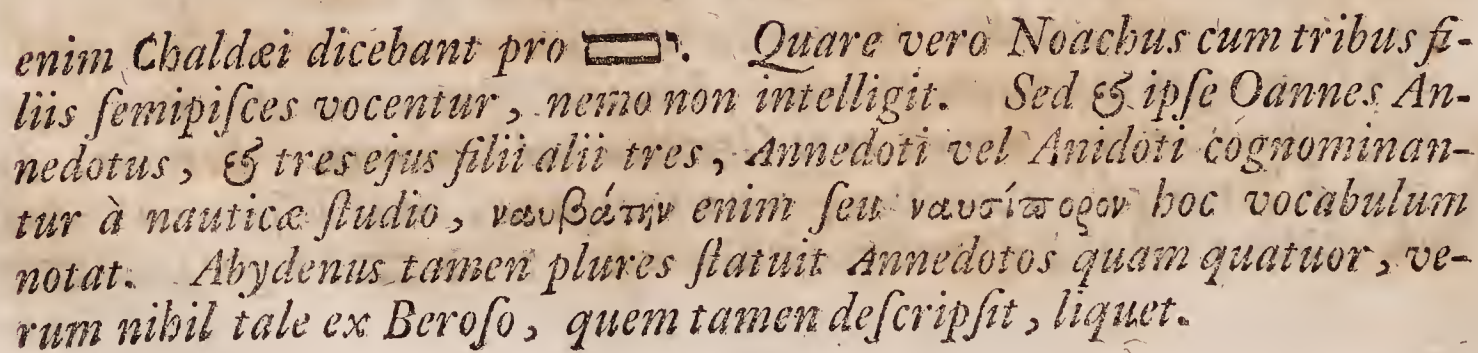 enim Chaldæi dicebant pro י. Quare verò Noachus cum tribus fi-
liis ſemipiſces vocentur, nemo non intelligit. Sed & ipſe Oannes An-
nedotus, & tres ejus filii alii tres, Annedoti vel Anidoti cognominan-
tur à nauticæ ſtudio, ναυβάτην enim ſeu ναυσίπορον hoc vocabulum
notat. Abydenus tamen plures ſtatuit Annedotos quam quatuor, ve-
rum nihil tale ex Beroſo, quem tamen deſcripſit, liquet.